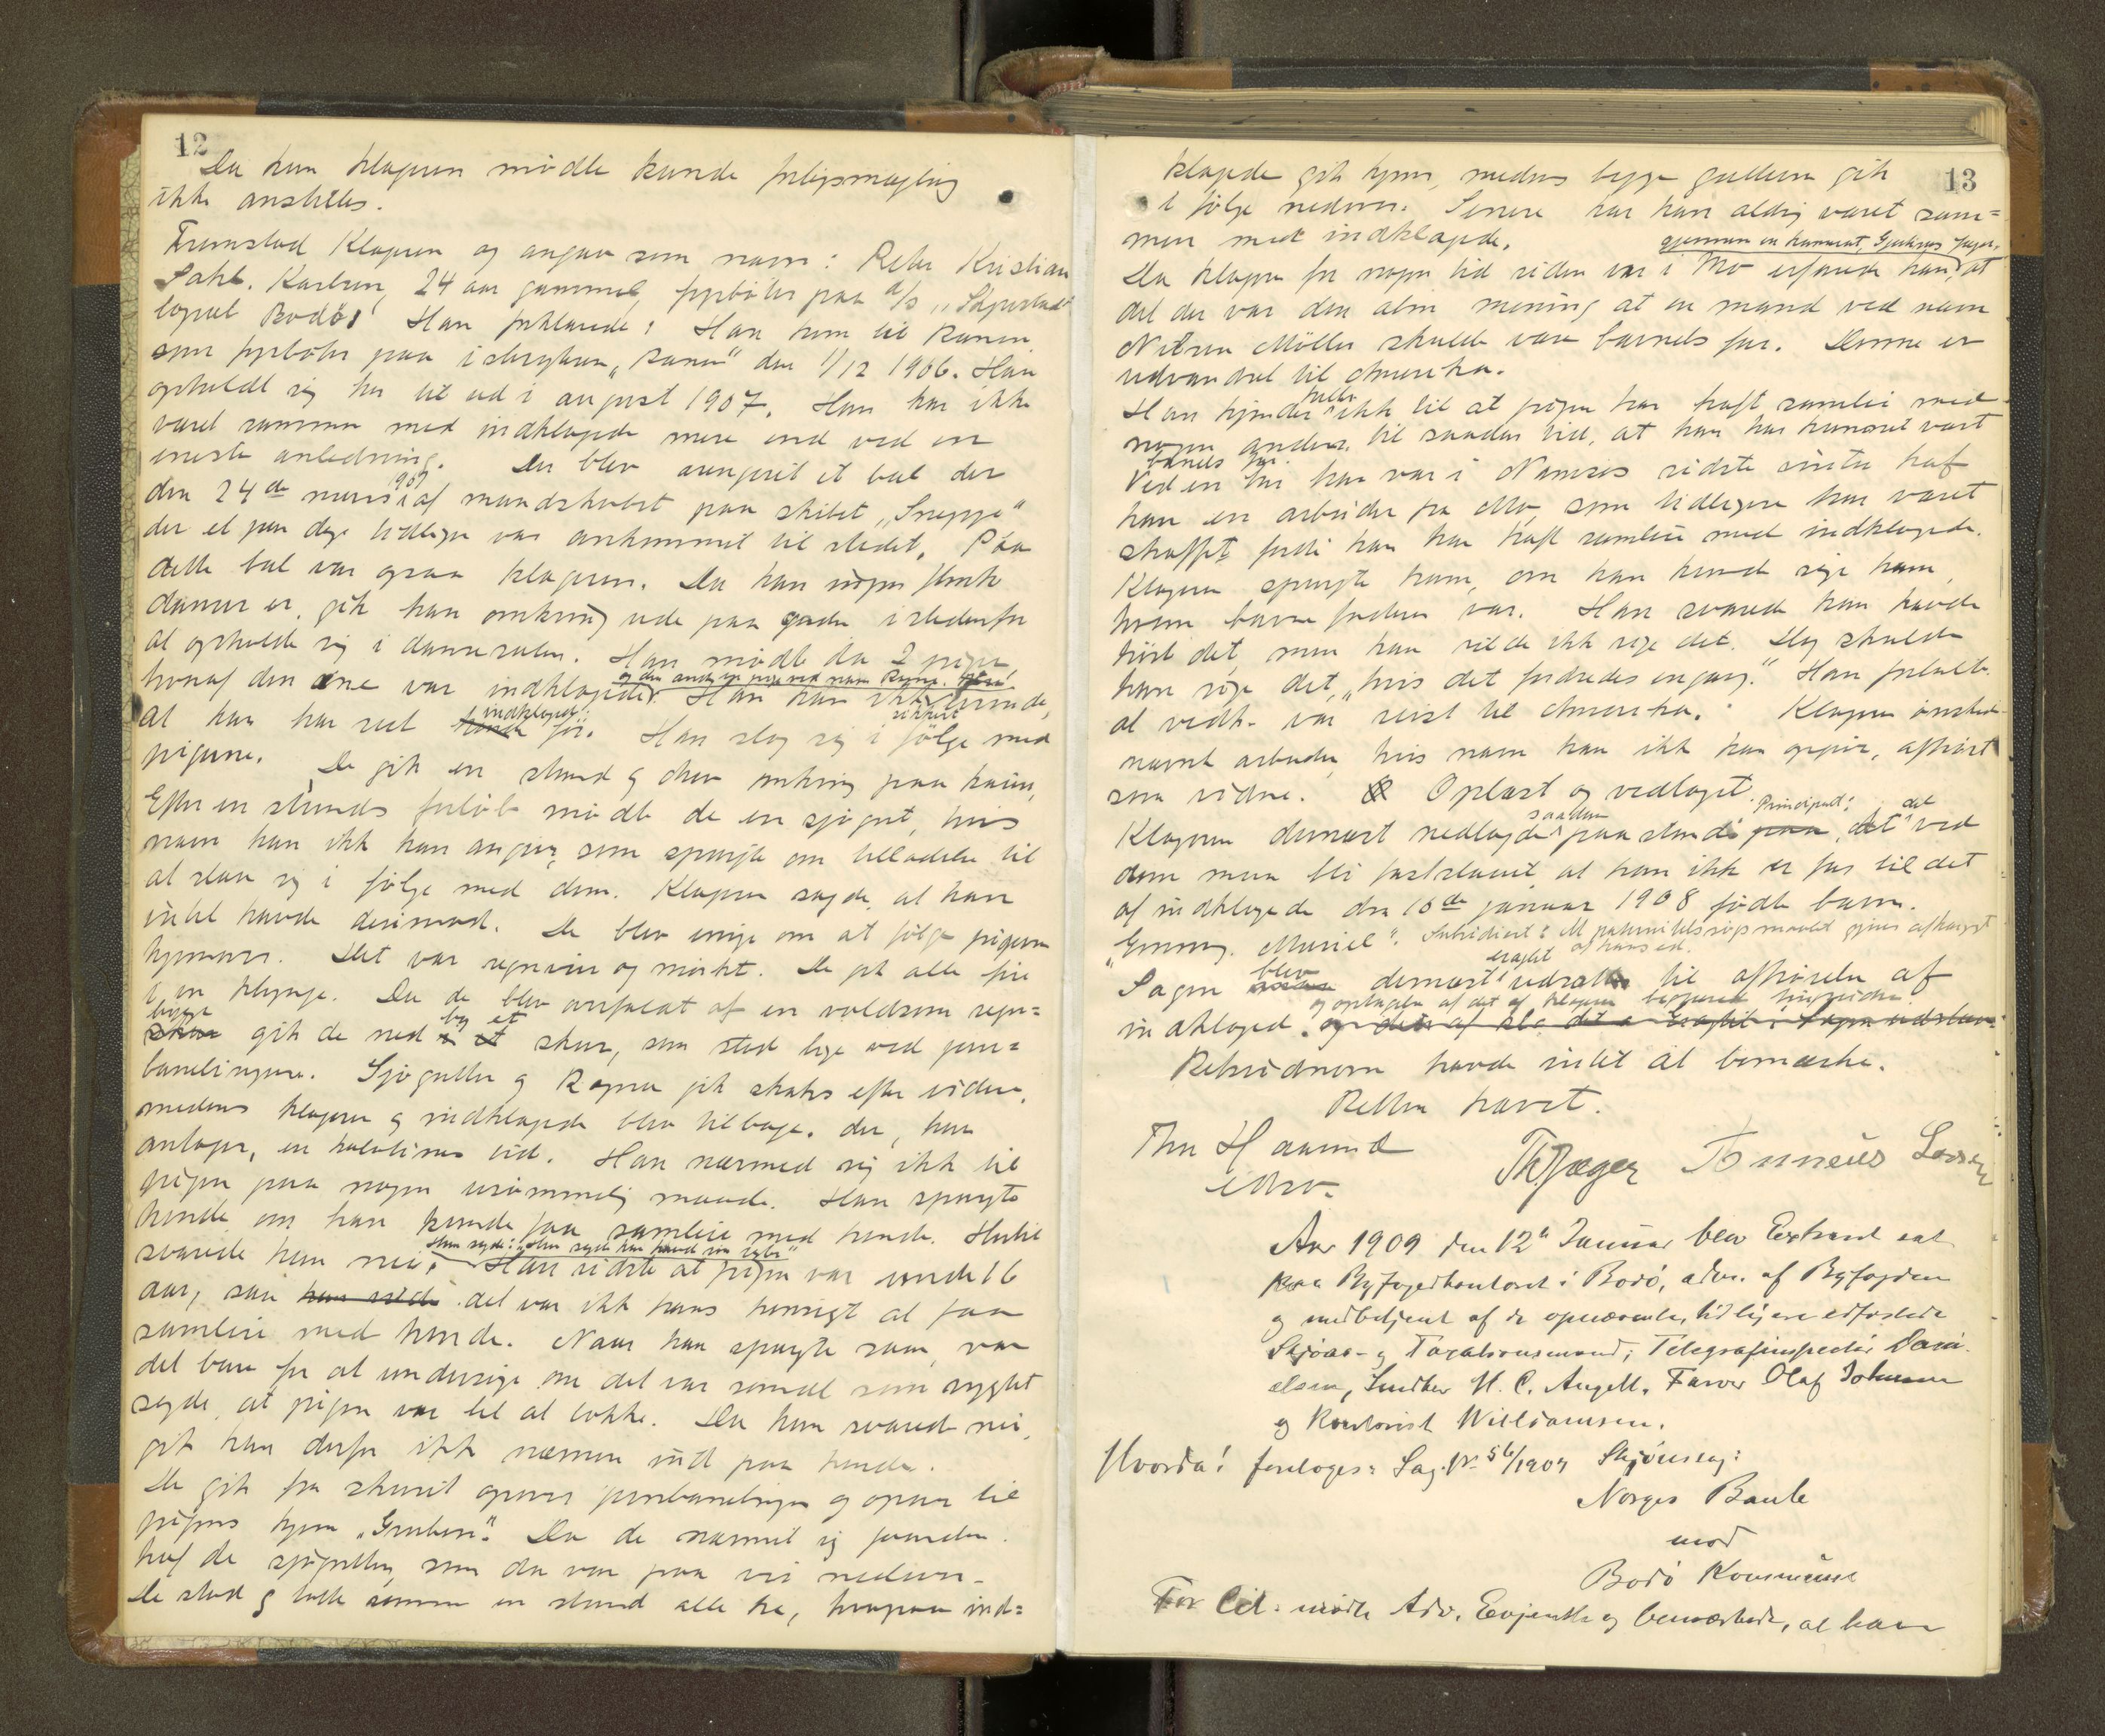 12
Da kun klageren mødte kunde forligsmægling
ikke anstilles.
Fremstod Klageren og angav som navn: Peter Kristian
Karlsen, 24 aar gammel, fyrbøter paa d/s "Skjerstad"
Bodø. Han forklarede: Han kom til Ranen
som fyrbøter paa isbryteren "Ranen" den 1/12 1906. Han
opholdt sig her til ud i august 1907. Han har ikke
været sammen med indklagede mere end ved en
eneste anledning. Der blev arrangeret et bal der
den 24de mars 1907 af mandskabet paa skibet "Sneppe"
der et par dage tidligere var ankommet til stedet. Paa
dette bal var ogsaa klageren. Da han ingen
danser er, gik han omkring ude paa gaden istedenfor
at opholde sig i dansesalen. Han mødte da 2 piger,
og den anden en pige ved navn Ragna.
hvoraf den ene var indklagede. Han kan ikke erindre,
indklagede sikkert
at han har set hende før. Han slog sig i følge med
pigerne. De gik en stund og drev omkring paa kaien,
Efter en stunds forløb mødte de en sjøgut, hvis
navn han ikke kan angive, som spurgte om tilladelse til
at slaa sig i følge med dem. Klageren sagde, at han
intet havde derimod. De blev enige om at følge pigerne
hjemover. Det var regnveir og mørkt. De gik alle fire
i en klynge. Da de blev overfaldt af en voldsom regn=
bygge
gik de ned i et skur, som stod lige ved jern=
banelinjerne. Sjøgutten og Ragna gik straks efter videre,
medens klageren og indklagede blev tilbage der, han
antager, en halvtimes tid. Han nærmed sig ikke til
pigen paa nogen usømmelig maade. Han spurgte
hende, om han kunde faa samleie med hende. Hertil
svarede hun nei. Han vidste at pigen var under 16
aar, saa han vilde det var ikke hans hensigt at faa
samleie med hende. Naar han spurgte saa, var
det bare for at undersøge om det var sandt som rygtet
sagde, at pigen var let at lokke. Da hun svared nei,
gik han derfor ikke nærmere ind paa hende.
De gik fra skuret opover jernbanelinjen og opover til
pigens hjem "Gruben". Da de nærmet sig
traf de sjøgutten, som da var paa vei nedover.
De stod og talte sammen en stund alle tre, hvorpaa ind=
13
klagede gik hjem, medens begge gutterne gik
i følge nedover. Senere har han aldrig været sam=
men med indklagede.
gjennem en kamerat,
Da klageren for nogen tid siden var i Mo erfarede han, at
det der var den alm. mening at en mand ved navn
Nilsen Møller skulde være barnets far. Denne er
udvandret til Amerika.
heller
Han kjender ikke til at pigen har haft samleie med
nogen anden til saadan tid, at han har kunnet vært
barnets far.
Ved en han var i Namsos sidste vinter traf
han en arbeider fra Mo, som tidligere har været
straffet, fordi han har haft samleie med indklagede.
Klageren spurgte ham, om han kunde sige ham,
hvem barnefaderen var. Han svarede han havde
hørt det, men han vilde ikke sige det. Dog skulde
han sige det, "hvis det fordredes engang." Han fortalte
at vedk. var reist til Amerika. Klageren ønskede
nævnte arbeider, hvis navn han ikke kan opgive, afhørt
som vidne. Oplæst og vedtaget
saadan Principalt:
Klageren dernæst nedlagde paastand paa, at ved
dom maa bli fastslaaet at han ikke er far til det
af indklagede den 16de januar 1908 fødte barn.
"Emmy Muriel". Subsidiært: At paternitetsspørgsmaalet gjøres afhængigt
af hans ed.
Sagen blev dernæst udsat til afhørelse af
og optagelse af det af klageren begjærede
indklagede.
Retsvidnerne havde intet at bemærke.
Retten hævet.
Th. Jæger
Aar 1909 den 12te Januar blev Extraret sat
paa Byfogedkontoret i Bodø, adm. af Byfogden
og medbetjent af de opnævnte, tidligere edfæstede
Skjøns- og Taxationsmænd; Telegrafinspektør Dani=
elsen, Smedker H. C. Angell, Farver Olaf Johansen
og Kontorist Williamsen.
Hvorda! foretoges: Sag Nr 56/1904 Skjønssag:
Norges Bank
mod
Bodø Kommune
For Cit. mødte Adv. Evjenth og bemærkede, at han